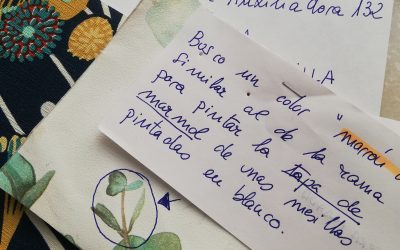 Auxiliadora 132
Busco un color "marrón
similar al de la rama
para pintar la tapa de
marmol de unas mesillas
pintadas en blanco.